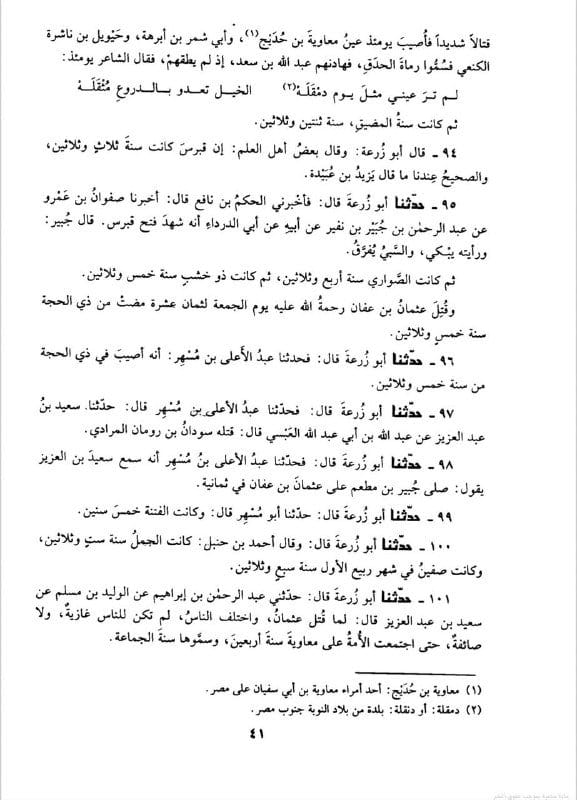 قتالاً شديداً فأُصيبَ يومئذ عينُ معاويةَ بن حُدَيْج(١)، وأبي شمر بن أبرهة، وحَيْويل بن ناشرة
الكنعي فسُمُّوا رماةَ الحدَقِ، فهادنهم عبد الله بن سعد، إذ لم يطقهمْ، فقال الشاعر يومئذ:
لـم تـرَ عينـي مثـلَ يـوم دمْقلَـهْ(٢) الخيـل تعدو بـالـدروعِ مُثْقَلَـهْ
ثم كانت سنةُ المضيقِ، سنة ثنتين وثلاثين.
٩٤ - قال أبو زُرعة: وقال بعضُ أهل العلم: إن قبرسَ كانت سنةَ ثلاثٍ وثلاثين،
والصحيحُ عِندنا ما قال يَزيدُ بن عُبَيْدة.
٩٥ - حدّثنا أبو زُرعةَ قال: فأخْبرني الحكمُ بن نافع قال: أخبرنا صفوانُ بن عَمْرو
عن عبد الرحمٰن بن جُبَيْر بن نفير عن أبيهِ عن أبي الدرداءِ أنه شهدَ فتح قبرس. قال جُبير:
ورأيته يبْكي، والسَّبيُ يُفرَّقُ.
ثم كانت الصَّواري سنة أربع وثلاثين، ثم كانت ذو خشبٍ سنة خمس وثلاثين.
وقُتِلَ عثمانُ بن عفان رحمةُ الله عليه يوم الجمعة لثمان عشرة مضتْ من ذي الحجة
سنة خمسٍ وثلاثين.
٩٦ - حدّثنا أبو زُرعةَ قال: فحدثنا عبدُ الأَعلى بن مُسْهِر: أنه أصيبَ في ذي الحجة
من سنة خمس وثلاثين.
٩٧ - حدّثنا أبو زُرعةَ قال: فحدّثنا عبدُ الأعلى بن مُسْهِر قال: حدّثنا سعيد بنُ
عبد العزيز عن عبد الله بن أبي عبد الله العَبْسي قال: قتله سودانُ بن رومان المرادي.
٩٨ - حدّثنا أبو زُرعةَ قال: فحدّثنا عبد الأعلى بنُ مُسْهِر أنه سمع سعيدَ بن العزيز
يقول: صلى جُبير بن مطعم على عثمانَ بن عفان في ثمانية.
٩٩ - حدّثنا أبو زُرعةَ قال: حدّثنا أبو مُسْهر قال: وكانت الفتنة خمسَ سنين.
١٠٠ - حدّثنا أبو زُرعةَ قال: وقال أحمد بن حنبل: كانت الجملُ سنة ستٍ وثلاثين،
وكانت صفينُ في شهر ربيع الأول سنة سبعٍ وثلاثين.
١٠١ - حدّثنا أبو زُرعةَ قال: حدّثني عبد الرحمٰن بن إبراهيم عن الوليد بن مسلم عن
سعيد بن عبد العزيز قال: لما قُتل عثمانُ، واختلف الناسُ، لم تكن للناس غازيةٌ، ولا
صائفةٌ، حتى اجتمعت الأُمةُ على معاويةَ سنة أربعينَ، وسمَّوها سنةَ الجماعة.
(١) معاوية بن حُدَيْج: أحد أمراء معاوية بن أبي سفيان على مصر.
(٢) دمقلة: أو دنقلة: بلدة من بلاد النوبة جنوب مصر.
٤١